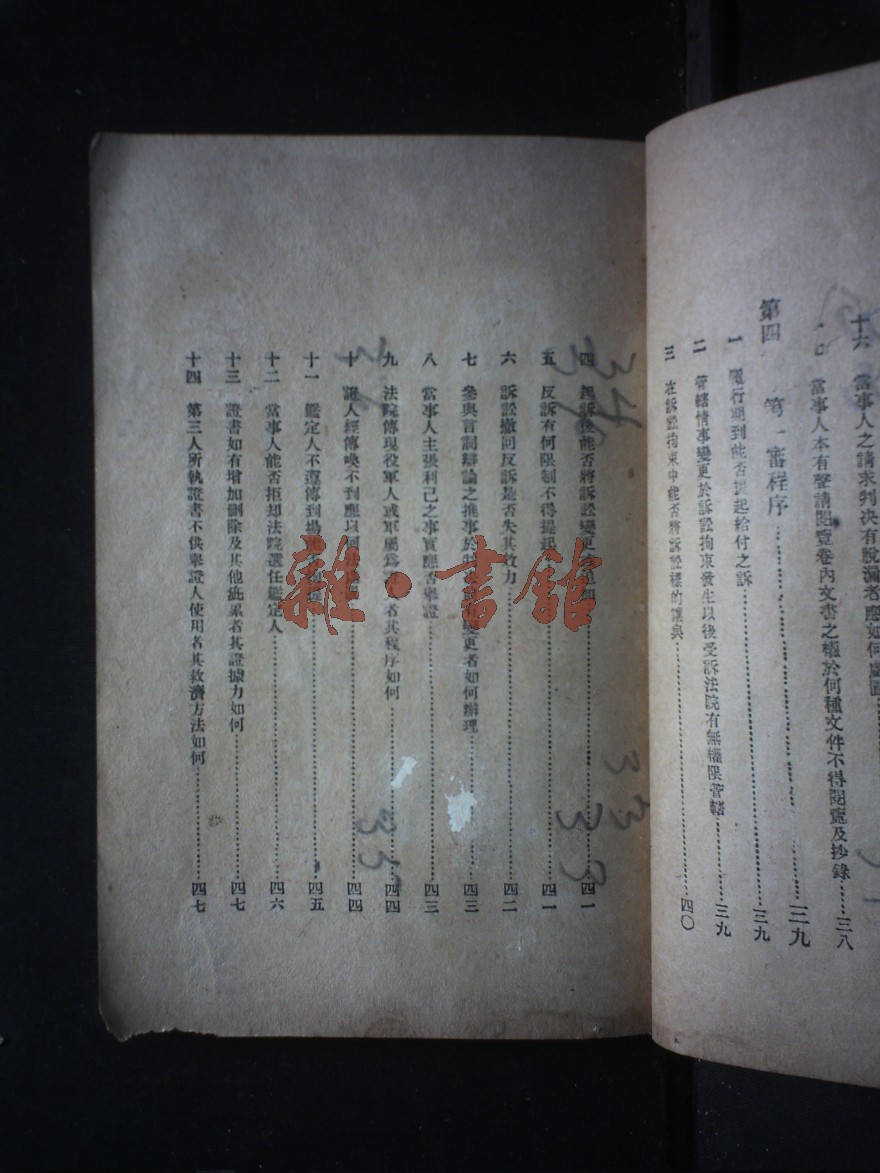 十六 當事人之請求判决有脫漏者應如何處置
當事人本有聲請閱覽卷內文書之權於何種文件不得閱覽及抄錄……三八
第四 第一審程序……三九
一 履行期未到能否提起給付之訴……三九
二 管轄情事變更於訴訟拘束發生以後受訴法院有無權限管轄……三九
三 在訴訟拘束中能否將訴訟標的讓與……四〇
四 起訴後能否將訴訟變更……四一
五 反訴有何限制不得提起……四一
六 訴訟撤回反訴是否失其效力……四二
七 參與言詞辯論之推事於判決前有變更者如何辦理……四三
八 當事人主張利己之事實應否舉證……四三
九 法院傳現役軍人或軍屬為證人者其程序如何……四四
十 證人經傳喚不到應以何……四四
十一 鑑定人不遵傳到場能否拘提……四五
十二 當事人能否拒却法院選任鑑定人……四六
十三 證書如有增加刪除及其他疵累者其證據力如何……四七
十四 第三人所執證書不供舉證人使用者其救濟方法如何……四七
雜·書館